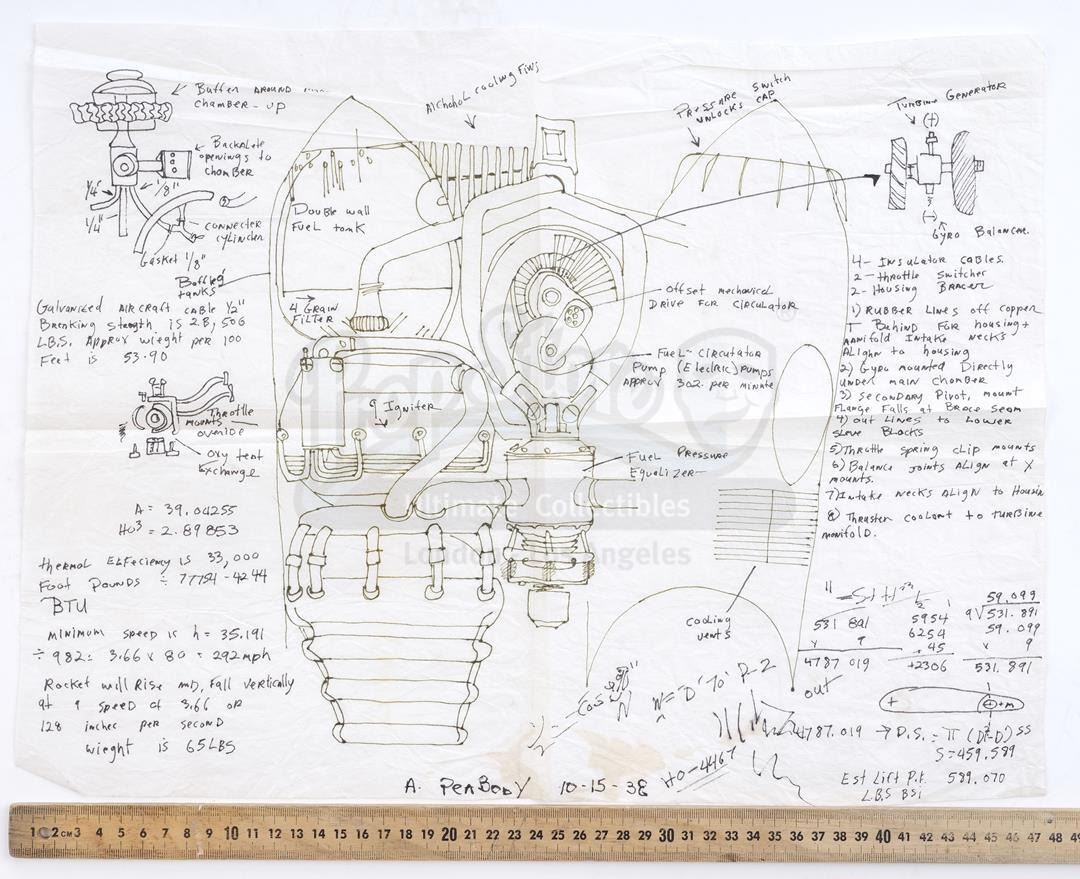 Buffer AROUND
chamber - up
Backplate
openings to
chamber
1/4"
1/8"
1/4"
connecter
cylinder
Gasket 1/8"
Baffled
tanks
Galvanized AIRCRAFT cable 1/2"
Breaking strength is 28,506
L.B.S. Approx wieght per 100
Feet is 53.90
Throttle
mounts -
overide
oxy tent
Exchange
A = 39.04255
HO³ = 2.89853
thermal Efficiency is 33,000
Foot Pounds ÷ 77754-4244
BTU
minimum speed is h = 35.191
÷ 982 = 3.66 x 80 = 292 mph
Rocket will Rise Fall vertically
at a speed of 3.66 or
128 inches per second
wieght is 65 LBS
Alchohol cooling Fins
Double wall
Fuel tank
4 GRAIN
FILTER
9 Igniter
PRESSURE Switch
UNLOCKS CAP
Offset mechanical
DRIVE FOR CIRCULATOR
Fuel - Circutator
Pump (Electric) Pumps
Approx 30z. per minute
Fuel Pressure
Equalizer
cooling
vents
Turbine Generator
(+)
(-)
Gyro Balancer
4 - Insulator cables.
2 - throttle Switcher
2 - Housing Bracer
1) Rubber Lines off copper
Behind For housing +
manifold Intake necks
Align to housing
2) Gyro mounted Directly
under main chamber
3) Secondary Pivot, mount
Flange Falls at Brace seam
4) out Lines to Lower
Sleve Blocks
5) Throttle spring clip mounts
6) Balance joints Align at X
mounts.
7) Intake necks Align to Housin
8) Thruster coolant to turbine
manifold.
531 891
x 9
4787 019
5954
6254
.45
+2306
59.099
9√531.891
59.099
x 9
531.891
out
+
+m
4787.019 → D.S. = π (D²-D) SS
S = 459.589
Est Lift P.F. 589.070
L.B.S BSI
W = D' To' R-2
HO-4467
A. PEABODY 10-15-38
PropStore
®
Ultimate Collectibles
London Los Angeles
1 2 CM 3 4 5 6 7 8 9 10 11 12 13 14 15 16 17 18 19 20 21 22 23 24 25 26 27 28 29 30 31 32 33 34 35 36 37 38 39 40 41 42 43 44 45 46 47 48 49